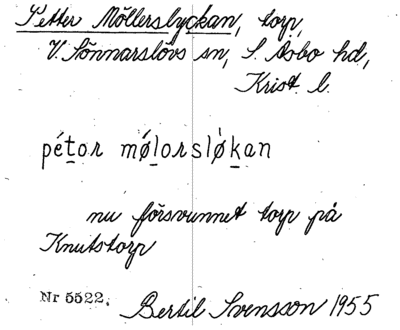 Petter Möllerslyckan, torp,
V. Sönnarslövs sn, S. Åsbo hd,
Krist. l.
pétor mǿlorslǿkan
nu försvunnet torp på
Knutstorp
Nr 5522. Bertil Svensson 1955